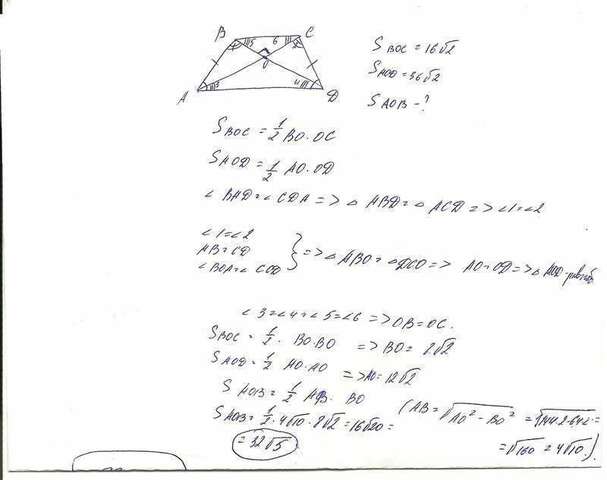 B 5 6 C
1 2
O
A 3 4 D
S BOC = 16√2
S AOD = 36√2
S AOB - ?
S BOC = 1/2 BO · OC
S AOD = 1/2 AO · OD
∠ BAD = ∠ CDA => △ ABD = △ ACD => ∠1 = ∠2
∠1 = ∠2
AB = CD
∠ BOA = ∠ COD
} => △ ABO = △ DCO => AO = OD => △ AOD -
∠3 = ∠4 = ∠5 = ∠6 => OB = OC.
S BOC = 1/2 · BO · BO => BO = 8√2
S AOD = 1/2 AO · AO => AO = 12√2
S AOB = 1/2 AB · BO
(AB = √AO² - BO² = √144·2-64·2 =
S AOB = 1/2 · 4√10 · 8√2 = 16√20 =
= √160 = 4√10.)
= 32√5